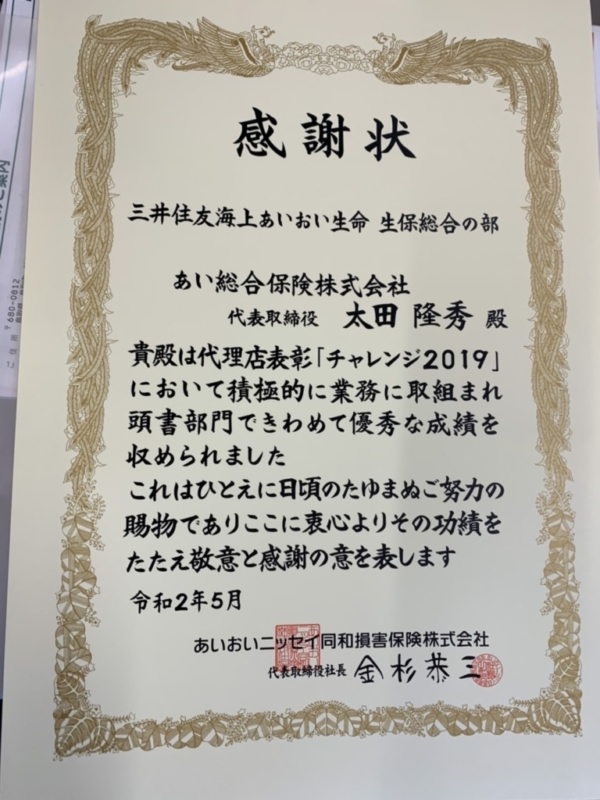 感謝状
三井住友海上あいおい生命 生保総合の部
あい総合保険株式会社
代表取締役 太田 隆秀 殿
貴殿は代理店表彰「チャレンジ2019」
において積極的に業務に取組まれ
頭書部門できわめて優秀な成績を
収められました
これはひとえに日頃のたゆまぬご努力の
賜物でありここに衷心よりその功績を
たたえ敬意と感謝の意を表します
令和2年5月
あいおいニッセイ同和損害保険株式会社
代表取締役社長 金杉恭三
〒680-0812